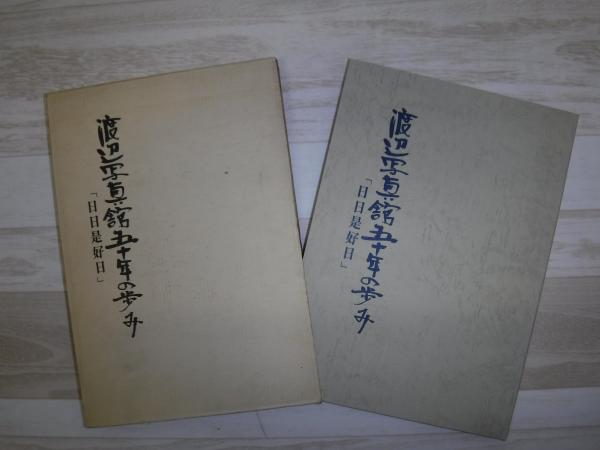 渡辺写真舘五十年の歩み
「日日是好日」
渡辺写真舘五十年の歩み
「日日是好日」